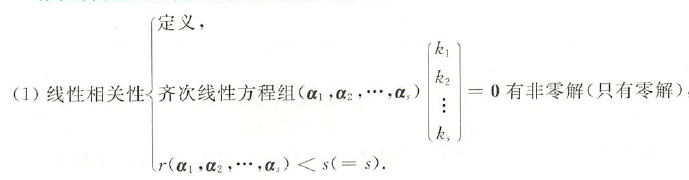 定义,
(1) 线性相关性 齐次线性方程组(α₁,α₂,⋯,αₛ) [k₁ k₂ ⋮ kₛ] = 0 有非零解(只有零解),
r(α₁,α₂,⋯,αₛ) < s(= s).